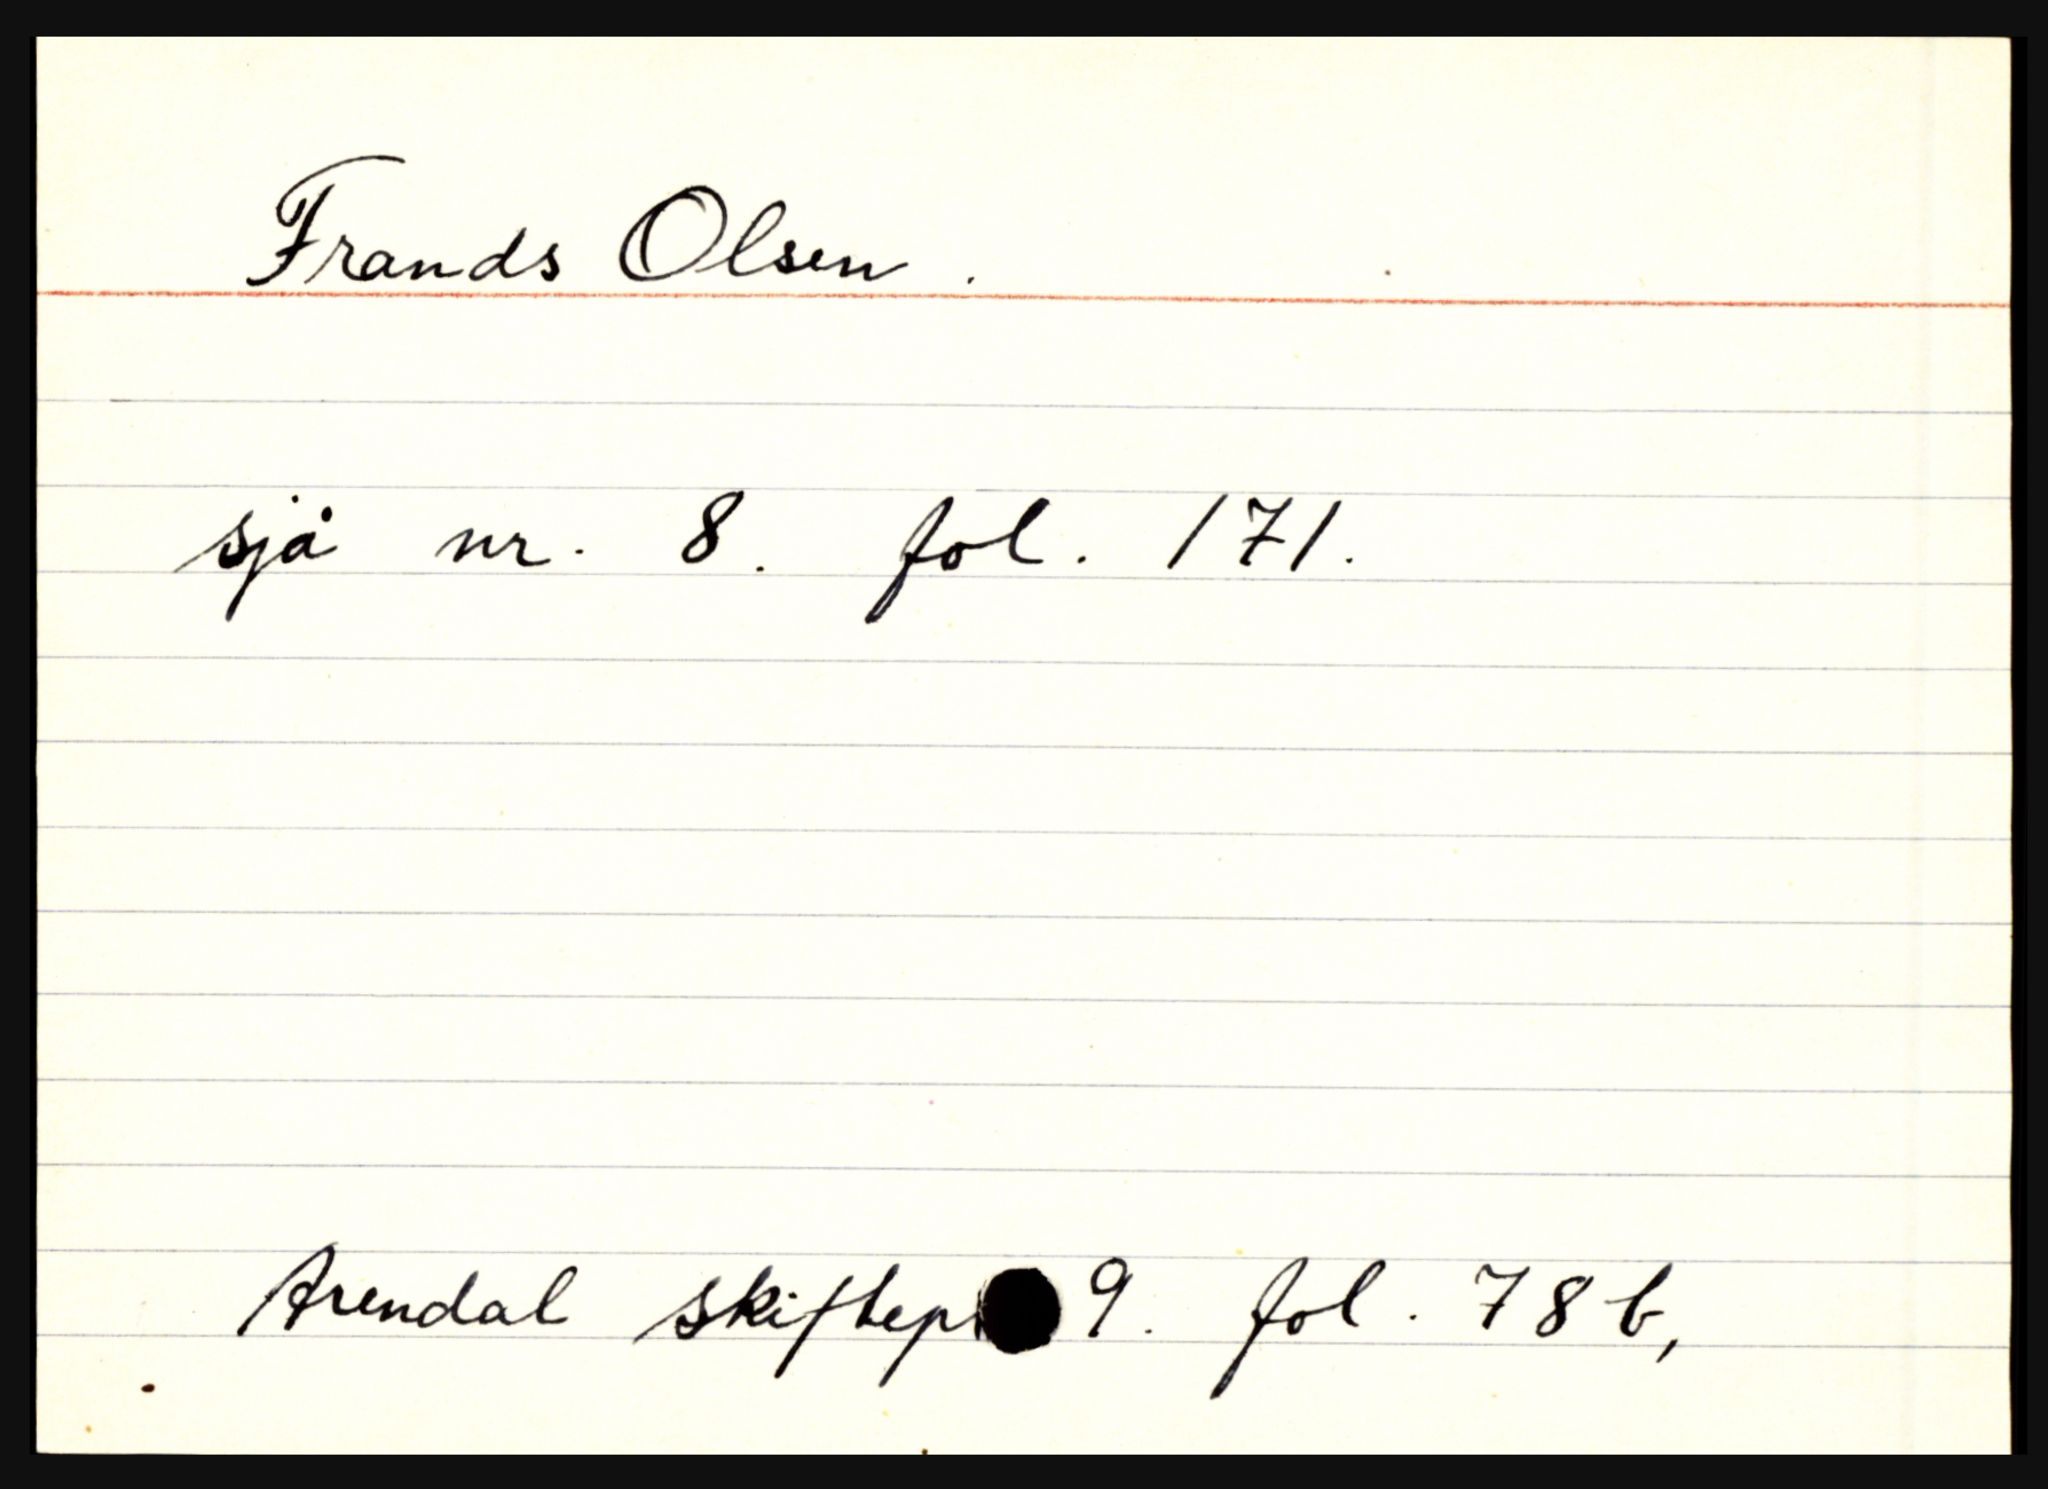 Frands Olsen.
sjå nr. 8. fol. 171.
Arendal skiftepr 9. fol. 78b,